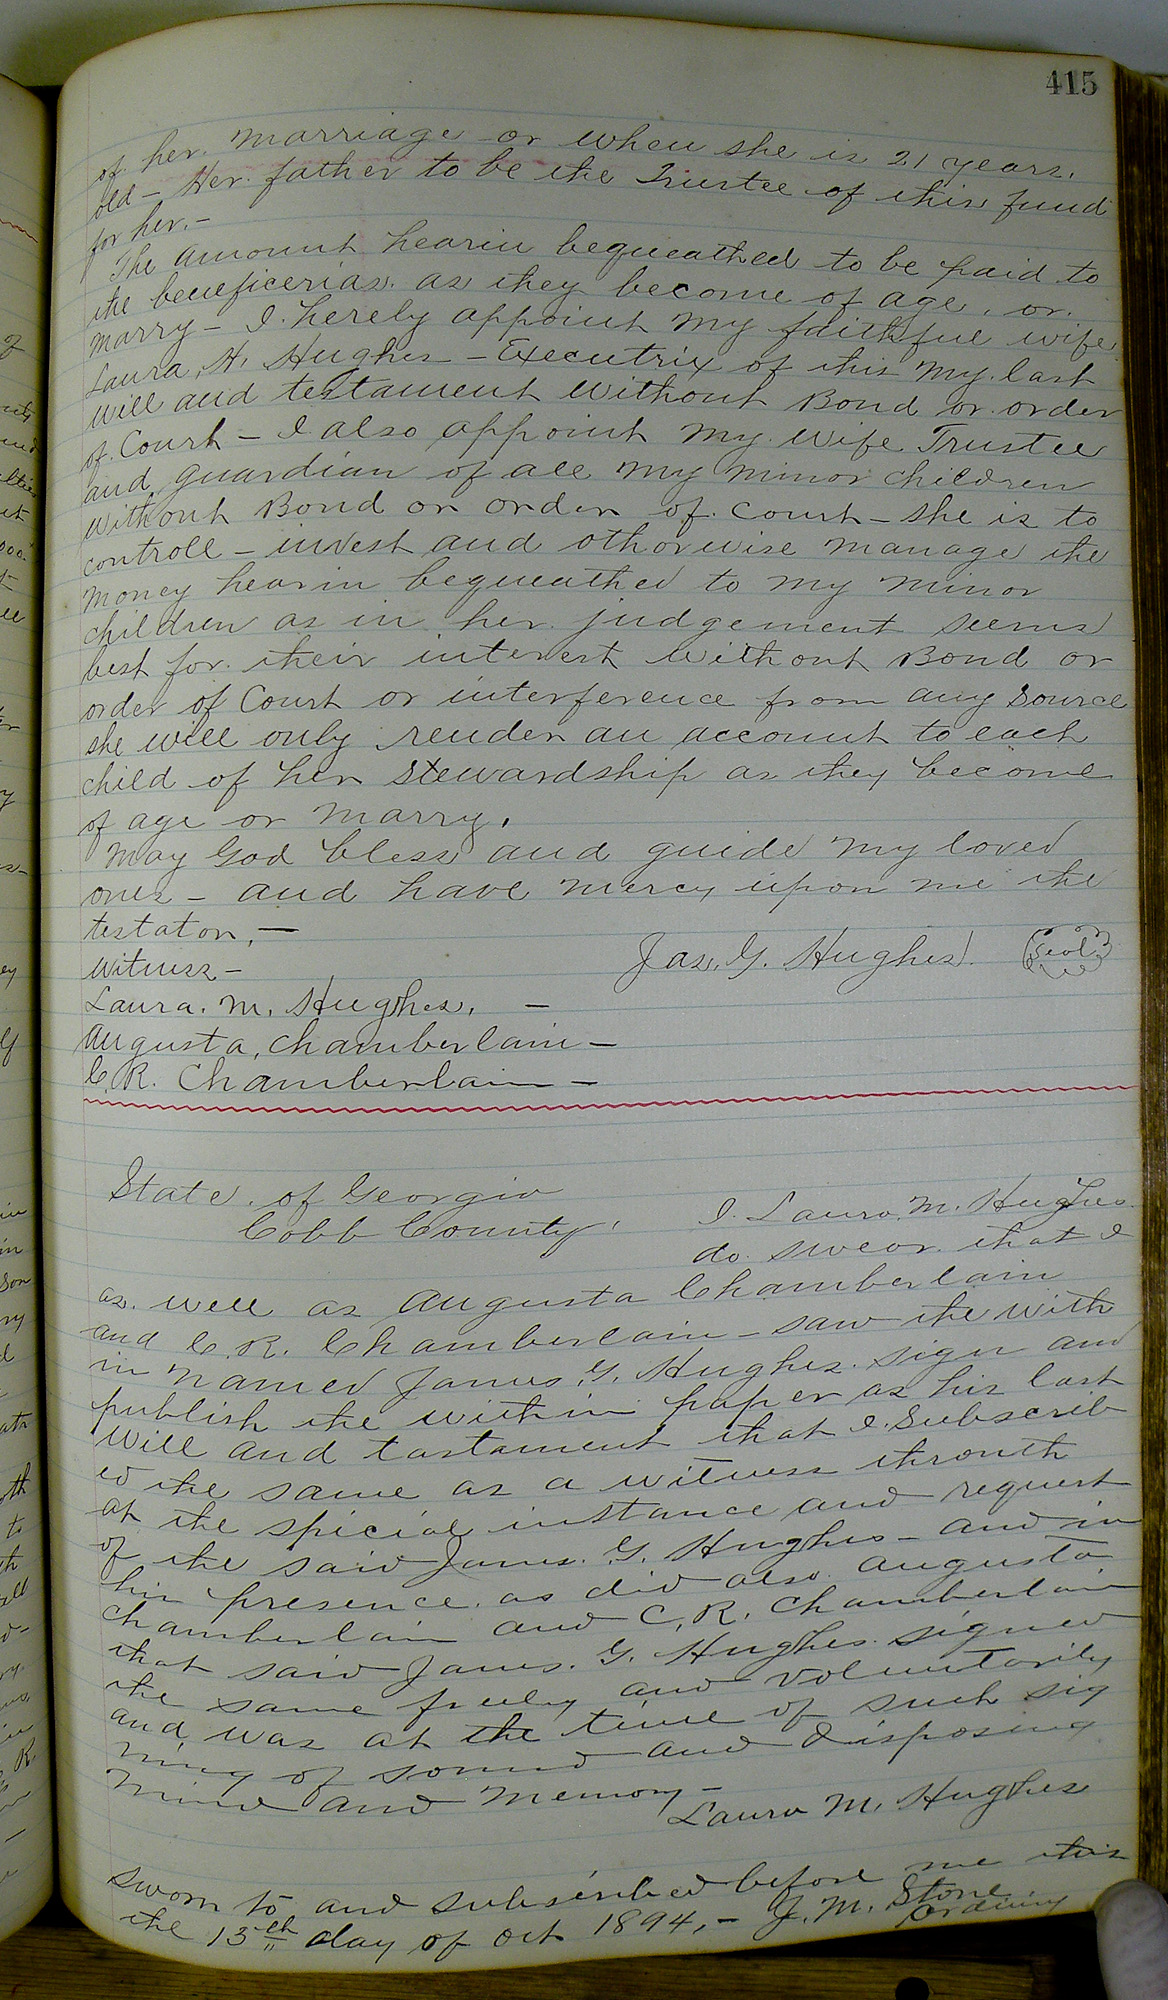 415
of her marriage or when she is 21 years.
old - Her father to be the Trustee of this fund
for her. -
The amount hearin bequeathed to be paid to
the beneficerias as they become of age, or.
marry - I hereby appoint my faithful wife
Laura, H, Hughes - Executrix of this my last
will and testament without Bond or order
of Court - I also appoint my wife Trustee
and guardian of all my minor children
without Bond or order of Court - she is to
controll - invest and othorwise manage the
money hearin bequeathed to my minor
children as in her judgement seems
best for their interest without Bond or
order of Court or interference from any source
she will only render an account to each
child of her stewardship as they become
of age or marry.
May God bless and guide my loved
ones - and have mercy upon me the
testator, -
Witness -
Jas, G. Hughes. Seal
Laura. M, Hughes. -
Augusta, Chamberlain -
C. R. Chamberlain -
State of Georgia
Cobb County,
I. Laura. M. Hughes
do swear that I
as well as Augusta Chamberlain
and C. R. Chamberlain - saw the with
in named James, G, Hughes sign and
publish the within paper as his last
will and tastament that I. Subscrib
ed the same as a witness
at the spicial instance and request
of the said James. G. Hughes - and in
his presence. as did also Augusta
Chamberlain and C, R. Chamberlain
that said James. G. Hughes signed
the same freely and voluntarily
and was at the time of such sig
ning of sound and disposing
mind and memory -
Laura M. Hughes
sworn to and subscribed before me this
the 13th day of Oct 1894, - J. M. Stone
Ordinary